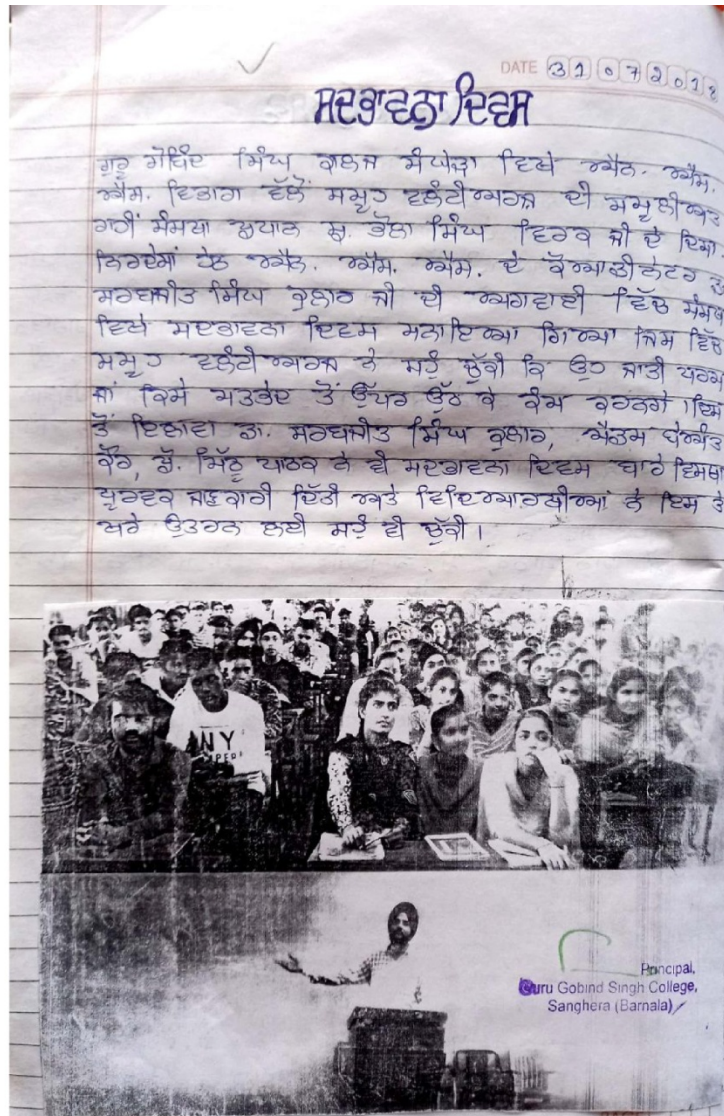 DATE 31 07 201
ਸਦਭਾਵਨਾ ਦਿਵਸ
ਗੁਰੂ ਗੋਬਿੰਦ ਸਿੰਘ ਕਾਲਜ ਸੰਘੇੜਾ ਵਿਖੇ ਐਨ. ਐਸ.
ਐਸ. ਵਿਭਾਗ ਵੱਲੋਂ ਸਮੂਹ ਵਲੰਟੀਅਰਜ਼ ਦੀ ਸਮੂਲੀਅਤ
ਰਾਹੀਂ ਸੰਸਥਾ ਪ੍ਰਧਾਨ ਸ੍ਰ. ਭੋਲਾ ਸਿੰਘ ਵਿਰਕ ਜੀ ਦੇ ਦਿਸ਼ਾ
ਨਿਰਦੇਸ਼ਾਂ ਹੇਠ ਐਨ. ਐਸ. ਐਸ. ਦੇ ਕੋਆਰਡੀਨੇਟਰ ਡਾ.
ਸਰਬਜੀਤ ਸਿੰਘ ਕੁਲਾਰ ਜੀ ਦੀ ਅਗਵਾਈ ਵਿੱਚ ਸੰਸਥਾ
ਵਿਖੇ ਸਦਭਾਵਨਾ ਦਿਵਸ ਮਨਾਇਆ ਗਿਆ ਜਿਸ ਵਿੱਚ
ਸਮੂਹ ਵਲੰਟੀਅਰਜ਼ ਨੇ ਸਹੁੰ ਚੁੱਕੀ ਕਿ ਉਹ ਜਾਤੀ ਧਰਮ
ਜਾਂ ਕਿਸੇ ਮਤਭੇਦ ਤੋਂ ਉੱਪਰ ਉੱਠ ਕੇ ਕੰਮ ਕਰਨਗੇ। ਇਸ
ਤੋਂ ਇਲਾਵਾ ਡਾ. ਸਰਬਜੀਤ ਸਿੰਘ ਕੁਲਾਰ, ਮੈਡਮ ਬੇਅੰਤ
ਕੌਰ, ਪ੍ਰੋ. ਮਿੱਠੂ ਪਾਠਕ ਨੇ ਵੀ ਸਦਭਾਵਨਾ ਦਿਵਸ ਬਾਰੇ ਵਿਸਥਾ
ਪੂਰਵਕ ਜਾਣਕਾਰੀ ਦਿੱਤੀ ਅਤੇ ਵਿਦਿਆਰਥੀਆਂ ਨੇ ਇਸ ਤੇ
ਖਰੇ ਉਤਰਨ ਲਈ ਸਹੁੰ ਵੀ ਚੁੱਕੀ।
NY
Principal,
Guru Gobind Singh College,
Sanghera (Barnala)